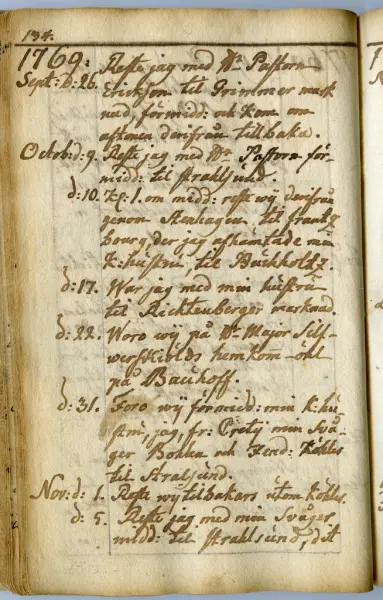 134.
1769. Reste jag med Hr Pastorn
Sept: d: 26. Erickson til Grimmer mark
nad, förmidd: och kom om
aftonen derifrån tillbaka.
Octob: d: 9. Reste jag med Hr Pastorn för
midd: til Strahlsund.
d: 10. Kl: 1. om midd: reste wÿ derifrån
genom Stenhagen til Frantz
bourg, der jag afhämtade min
K: hustru, til Buchholdz.
d: 17. War jag med min hustru
til Richtenberger marknad.
d: 22. Woro wÿ på Hr Major Silf
werskiölds hemkom-öhl
på Bauhoff.
d: 31. Foro wÿ förmidd: min K: hu
stru, jag, fr: min Swå-
ger och Köhler
til Stralsund.
Nov: d: 1. Reste wÿ tilbakars utom Köhler.
d: 5. Reste jag med min Swåger
midd: til Strahlsund, dit